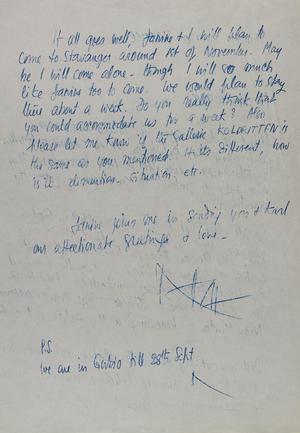 If all goes well, Janine & I will plan to
come to Stavanger around 1st of November. May
be I will come alone - though I will so much
like Janine too to come. We would plan to stay
there about a week. Do you really think think
you could accommodate us for a week? Also
please let me know if the Gallerie KOLORITTEN is
the same as you mentioned. If its different, how
is it dimention. Situation. etc.
Janine joins me in sending you & Karl
our affectionate greetings & love -
P.S.
We are in Gorbio till 28th Sept.